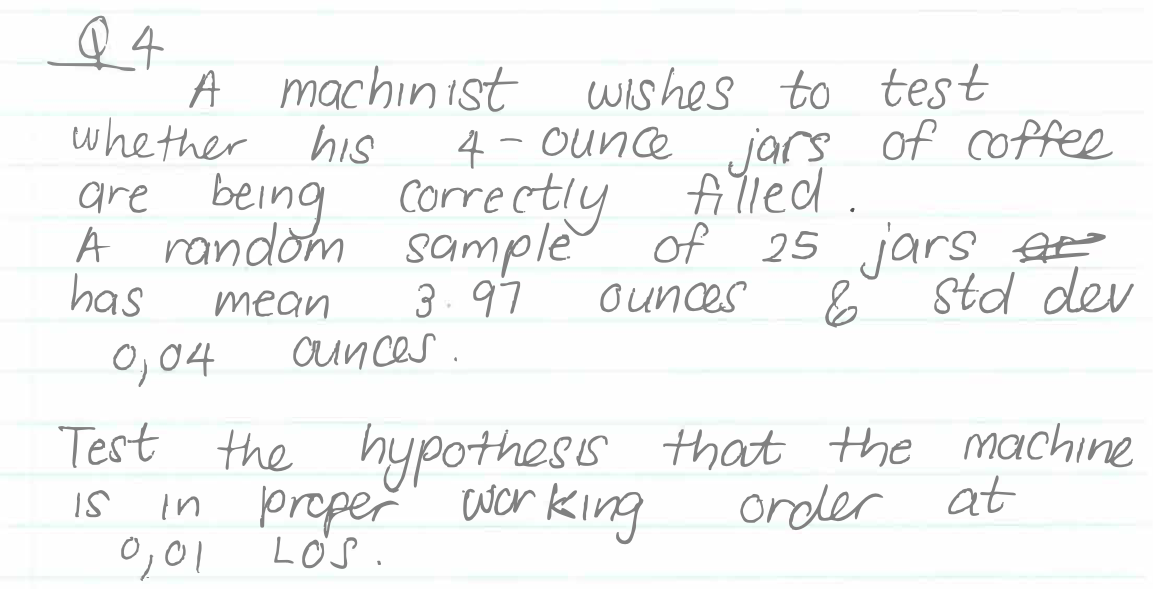 Q 4
A machinist wishes to test
whether his 4-ounce jars of coffee
are being correctly filled.
A random sample of 25 jars
has mean 3.97 ounces & std dev
0,04 ounces.
Test the hypothesis that the machine
is in proper working order at
0,01 LOS.